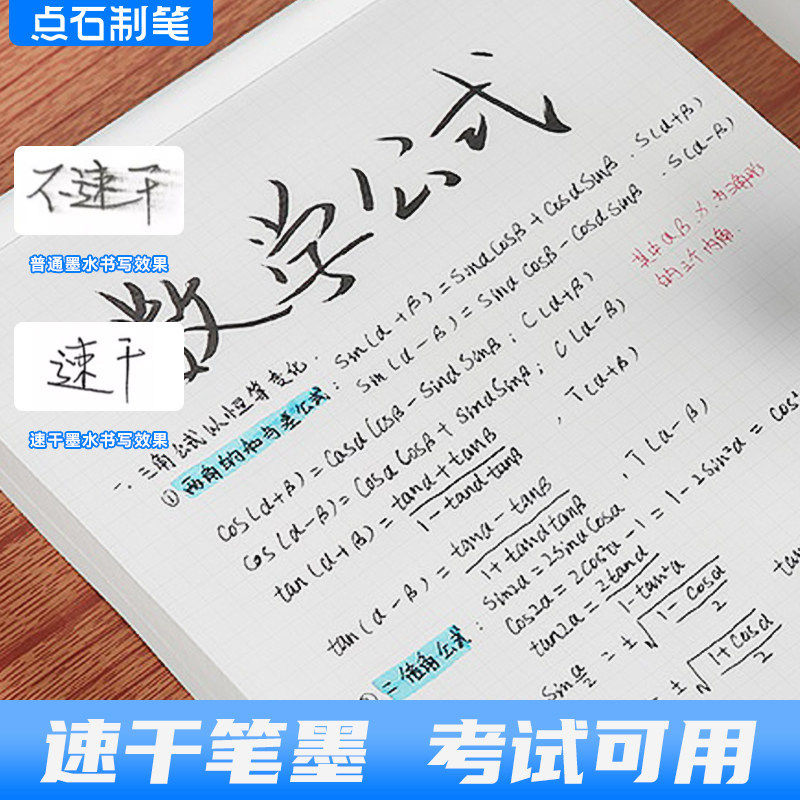 点石制笔
不速干
普通墨水书写效果
速干
速干墨水书写效果
数学公式
一、三角公式以恒等变化.
① 两角的和与差公式: sin(α+β)=sinαcosβ+cosαsinβ . S(α+β)
sin(α-β)=sinαcosβ-cosαsinβ . S(α-β)
其中α,β,γ,为三角形
的三个内角.
cos(α+β)=cosαcosβ-sinαsinβ; C(α+β)
cos(α-β)=cosαcosβ+sinαsinβ; C(α-β)
tan(α+β)=tanα+tanβ/1-tanαtanβ , T(α+β)
tan(α-β)=tanα-tanβ/1+tanαtanβ , T(α-β)
二倍角公式: sin2α=2sinαcosα
cos2α=2cos²α-1=1-2sin²α=cos²
tan2α=2tanα/1-tan²α
sin α/2=±√1-cosα/2
±√1+cosα/2
tan
速干笔墨 考试可用